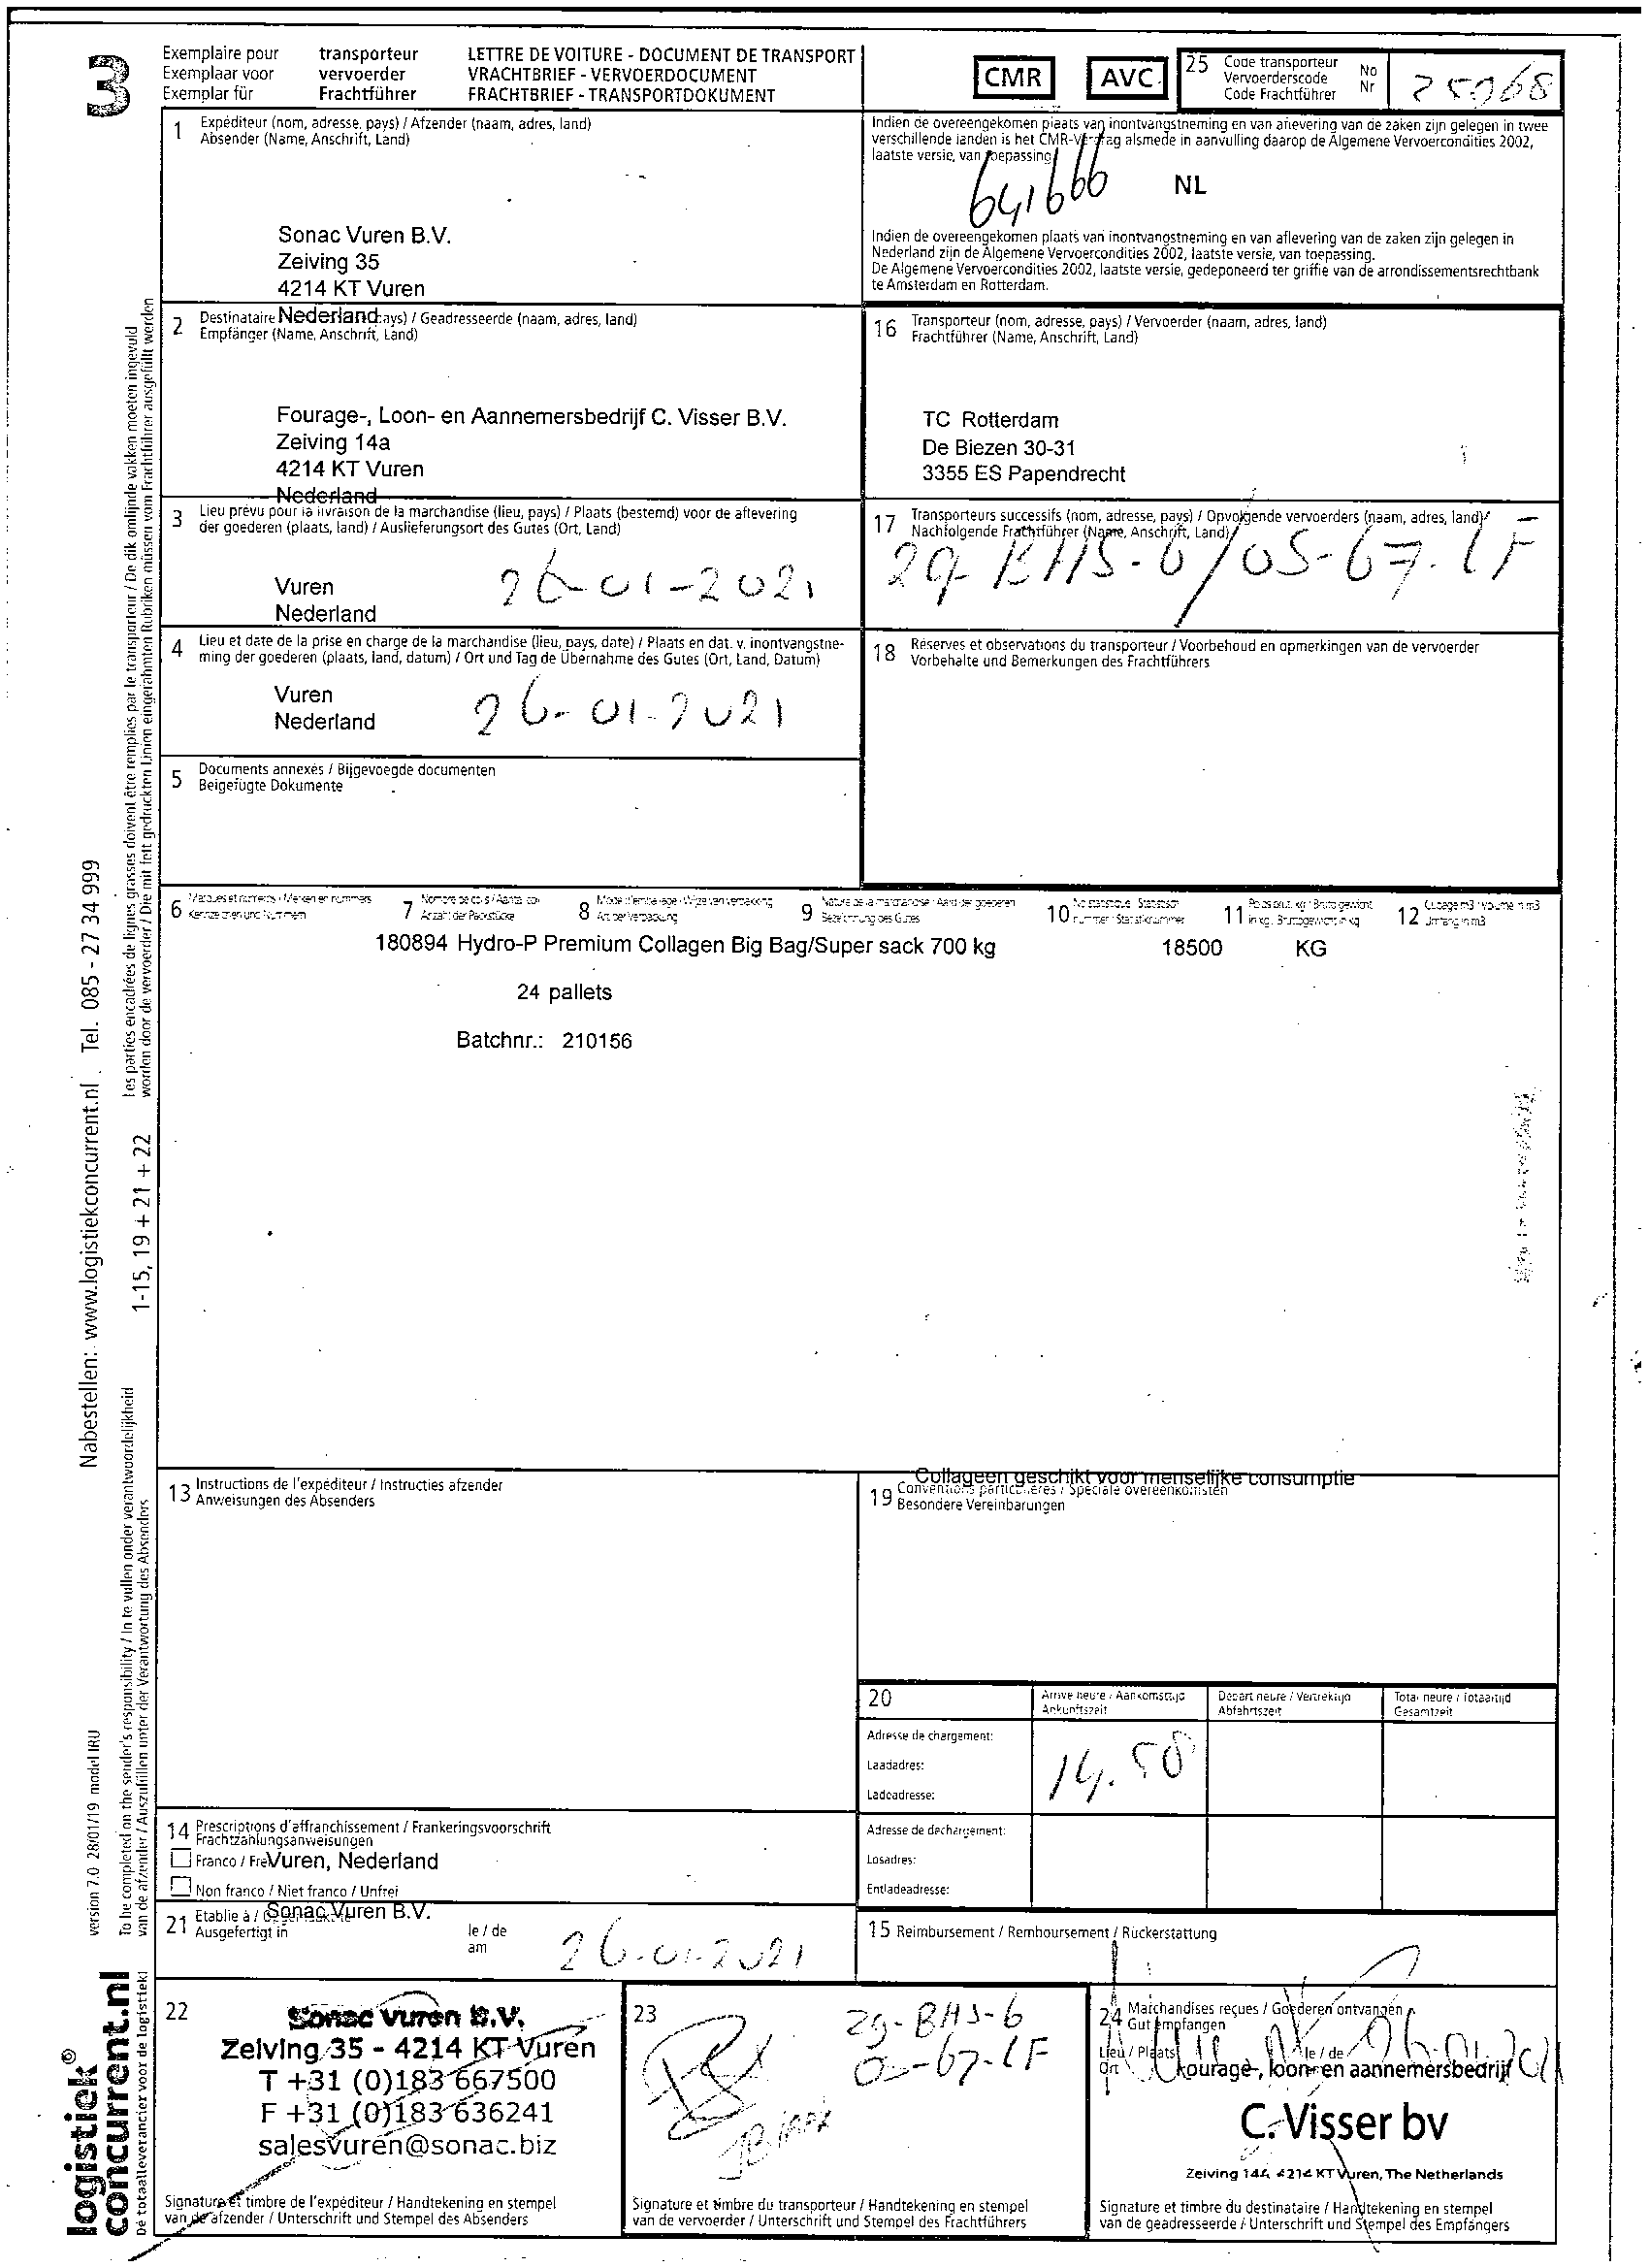 3
Exemplaire pour transporteur LETTRE DE VOITURE - DOCUMENT DE TRANSPORT
Exemplaar voor vervoerder VRACHTBRIEF - VERVOERDOCUMENT
Exemplar für Frachtführer FRACHTBRIEF - TRANSPORTDOKUMENT
CMR AVC
25 Code transporteur No
Vervoerderscode Nr
Code Frachtführer
25068
1 Expéditeur (nom, adresse, pays) / Afzender (naam, adres, land)
Absender (Name, Anschrift, Land)
Sonac Vuren B.V.
Zeiving 35
4214 KT Vuren
Nederland
Indien de overeengekomen plaats van inontvangstneming en van aflevering van de zaken zijn gelegen in twee
verschillende landen is het CMR-Verdrag alsmede in aanvulling daarop de Algemene Vervoercondities 2002,
laatste versie, van toepassing.
641666 NL
Indien de overeengekomen plaats van inontvangstneming en van aflevering van de zaken zijn gelegen in
Nederland zijn de Algemene Vervoercondities 2002, laatste versie, van toepassing.
De Algemene Vervoercondities 2002, laatste versie, gedeponeerd ter griffie van de arrondissementsrechtbank
te Amsterdam en Rotterdam.
2 Destinataire ays) / Geadresseerde (naam, adres, land)
Empfänger (Name, Anschrift, Land)
Fourage-, Loon- en Aannemersbedrijf C. Visser B.V.
Zeiving 14a
4214 KT Vuren
Nederland
16 Transporteur (nom, adresse, pays) / Vervoerder (naam, adres, land)
Frachtführer (Name, Anschrift, Land)
TC Rotterdam
De Biezen 30-31
3355 ES Papendrecht
3 Lieu prévu pour la livraison de la marchandise (lieu, pays) / Plaats (bestemd) voor de aflevering
der goederen (plaats, land) / Auslieferungsort des Gutes (Ort, Land)
Vuren 26-01-2021
Nederland
17 Transporteurs successifs (nom, adresse, pays) / Opvolgende vervoerders (naam, adres, land)
Nachfolgende Frachtführer (Name, Anschrift, Land)
29-BHS-6/05-67-LF
4 Lieu et date de la prise en charge de la marchandise (lieu, pays, date) / Plaats en dat. v. inontvangstne-
ming der goederen (plaats, land, datum) / Ort und Tag de Übernahme des Gutes (Ort, Land, Datum)
Vuren 26-01-2021
Nederland
18 Réserves et observations du transporteur / Voorbehoud en opmerkingen van de vervoerder
Vorbehalte und Bemerkungen des Frachtführers
5 Documents annexés / Bijgevoegde documenten
Beigefügte Dokumente
6 Marques et numéros / Merken en nummers
Kennzeichen und Nummern
7 Nombre de colis / Aantal colli
Anzahl der Packstücke
8 Mode d'emballage / Wijze van verpakking
Art der Verpackung
9 Nature de la marchandise / Aard der goederen
Bezeichnung des Gutes
10 No statistique / Statistisch
nummer / Statistiknummer
11 Poids brut, kg / Bruto gewicht
in kg. / Bruttogewicht in kg
12 Cubage m3 / Volume in m3
Umfang in m3
180894 Hydro-P Premium Collagen Big Bag/Super sack 700 kg 18500 KG
24 pallets
Batchnr.: 210156
13 Instructions de l'expéditeur / Instructies afzender
Anweisungen des Absenders
Collageen geschikt voor menselijke consumptie
19 Conventions particulières / Speciale overeenkomsten
Besondere Vereinbarungen
20 Arrive heure / Aankomsttijd
Ankunftszeit
Départ heure / Vertrektijd
Abfahrtszeit
Total heure / Totaaltijd
Gesamtzeit
Adresse de chargement:
Laadadres:
Ladeadresse:
14.50
Adresse de dechargement:
Losadres:
Entladeadresse:
14 Prescriptions d'affranchissement / Frankeringsvoorschrift
Frachtzahlungsanweisungen
Franco / Fre Vuren, Nederland
Non franco / Niet franco / Unfrei
21 Etablie à / Sonac Vuren B.V.
Ausgefertigt in
le / de
am
26-01-2021
15 Reimbursement / Remboursement / Rückerstattung
22 Sonac Vuren B.V.
Zeiving 35 - 4214 KT Vuren
T +31 (0)183 667500
F +31 (0)183 636241
salesvuren@sonac.biz
Signature et timbre de l'expéditeur / Handtekening en stempel
van de afzender / Unterschrift und Stempel des Absenders
23
29-BHS-6
05-67-LF
Signature et timbre du transporteur / Handtekening en stempel
van de vervoerder / Unterschrift und Stempel des Frachtführers
24 Marchandises reçues / Goederen ontvangen
Gut empfangen
Lieu / Plaats le / de
Ort
Fourage-, loon- en aannemersbedrijf
C. Visser bv
Zeiving 14A 4214 KT Vuren, The Netherlands
Signature et timbre du destinataire / Handtekening en stempel
van de geadresseerde / Unterschrift und Stempel des Empfängers
Les parties encadrées de lignes grasses doivent être remplies par le transporteur / De dik omlijnde vakken moeten ingevuld
worden door de vervoerder / Die mit fett gedruckten Linien eingerahmten Rubriken müssen vom Frachtführer ausgefüllt werden
1-15, 19 + 21 + 22
To be completed on the sender's responsibility / In te vullen onder verantwoordelijkheid
van de afzender / Auszufüllen unter der Verantwortung des Absenders
Nabestellen: www.logistiekconcurrent.nl Tel. 085 - 27 34 999
version 7.0 28/01/19 model IRU
logistiek®
concurrent.nl
Dé totaalleverancier voor de logistiek!